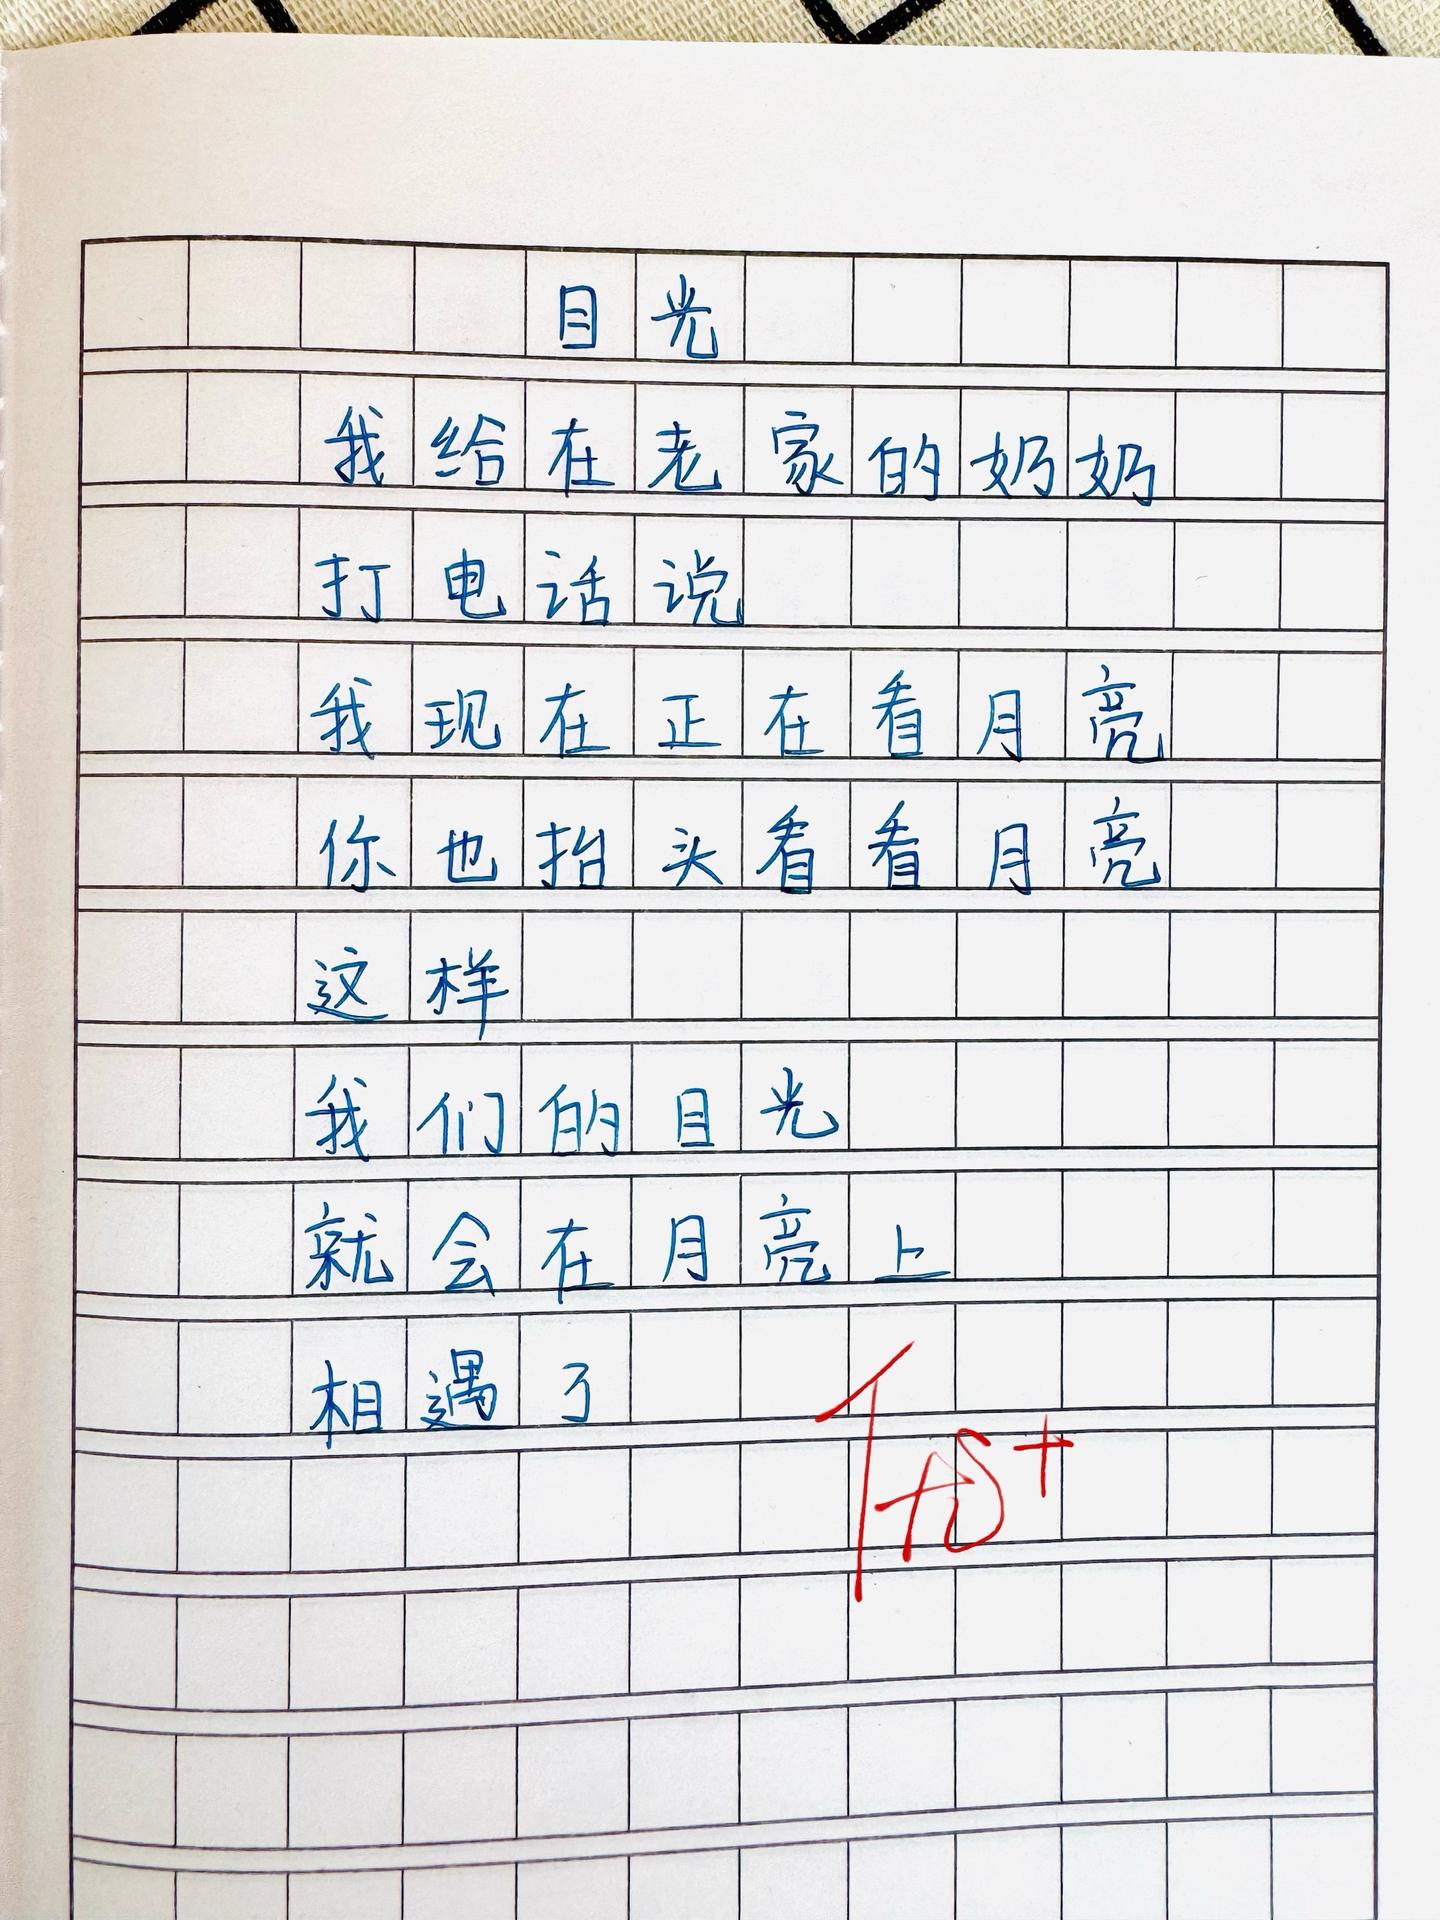 目光
我给在老家的奶奶
打电话说
我现在正在看月亮
你也抬头看看月亮
这样
我们的目光
就会在月亮上
相遇了